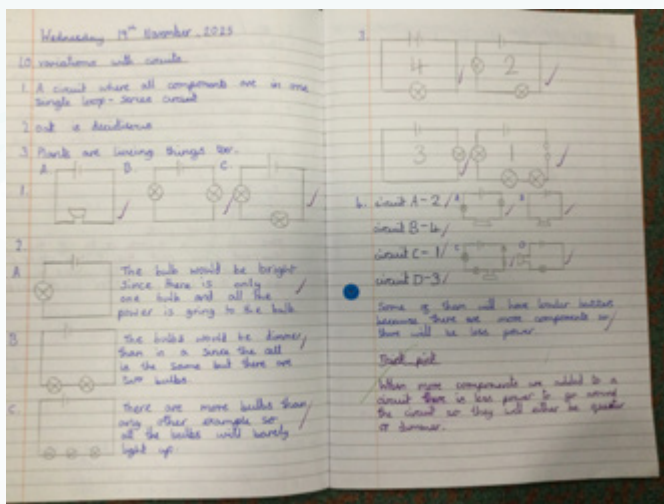 Wednesday 19th November, 2025
LO variations with circuits
1. A circuit where all components are in one
single loop - series circuit
2. oak is deciduous
3. Plants are living things too.
A. B. C.
1.
2.
A
The bulb would be bright
since there is only
one bulb and all the
power is going to the bulb
B
The bulbs would be dimmer
than in a since the cell
is the same but there are
two bulbs.
C.
There are more bulbs than
any other example so
all the bulbs will barely
light up.
3.
4 2
3 1
circuit A-2 A B
circuit B-4
circuit C-1 C D
circuit D-3
Some of them will have louder buzzers
because there are more components so
there will be less power.
Think pink
When more components are added to a
circuit there is less power to go around
the circuit so they will either be quieter
or dimmer.